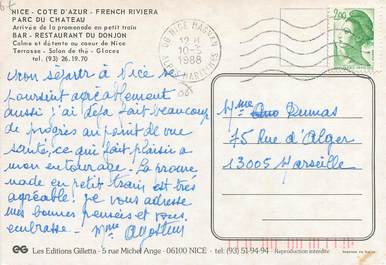 NICE - COTE D'AZUR - FRENCH RIVIERA
PARC DU CHATEAU
Arrivée de la promenade en petit train
BAR - RESTAURANT DU DONJON
Calme et détente au coeur de Nice
Terrasse - Salon de thé - Glaces
tel. (93) 26.19.70
06 NICE MAGNAN
12 H
10-5
1988
ALPES MARITIMES
2,00
mon séjour à Nice se
poursuit agréablement
aussi j'ai déjà fait beaucoup
de progrès au point de vue
santé, ce qui fait plaisir a
mon entourage. La prome
nade en petit train est très
agréable. je vous adresse
mes bonnes pensées et vous
embrasse. Mme
Mme Dumas
75 Rue d'Alger
13005 Marseille
EG Les Editions Gilletta - 5 rue Michel Ange - 06100 NICE - Tel. (93) 51-94-94 - Reproduction Interdite